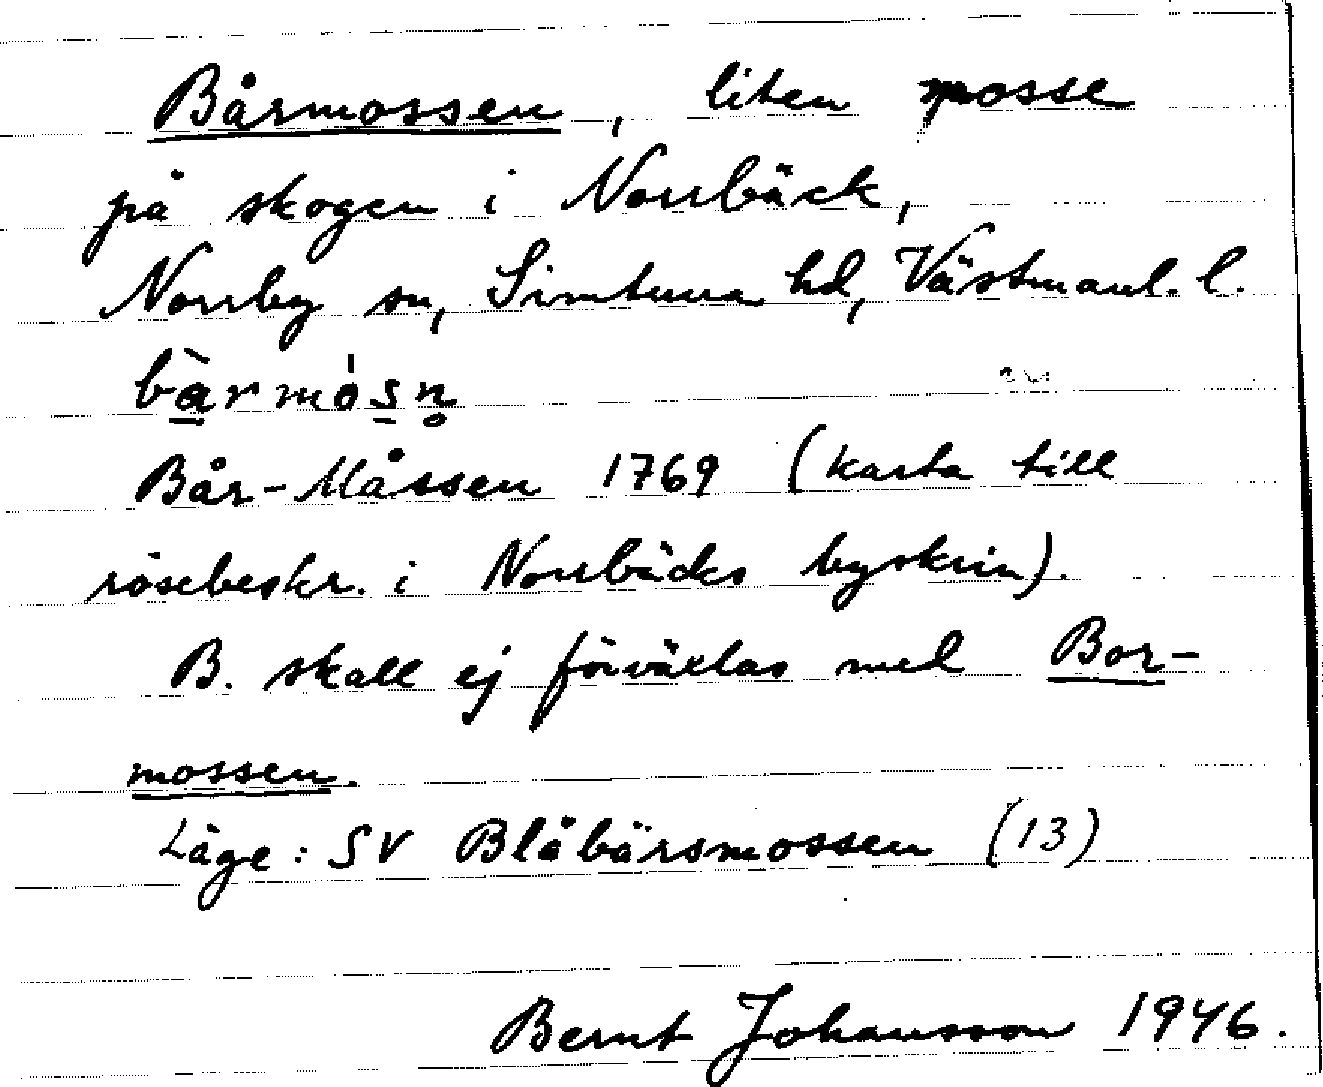 Bårmossen, liten mosse
på skogen i Norrbäck,
Norrby sn, Simtuna hd, Västmanl. l.
bàrmósn̥
Bår-Måssen 1769 (karta till
rösebeskr. i Norrbäcks byskrin).
B. skall ej förväxlas med Bor-
mossen.
Läge: SV Blåbärsmossen (13)
Bernt Johansson 1946.